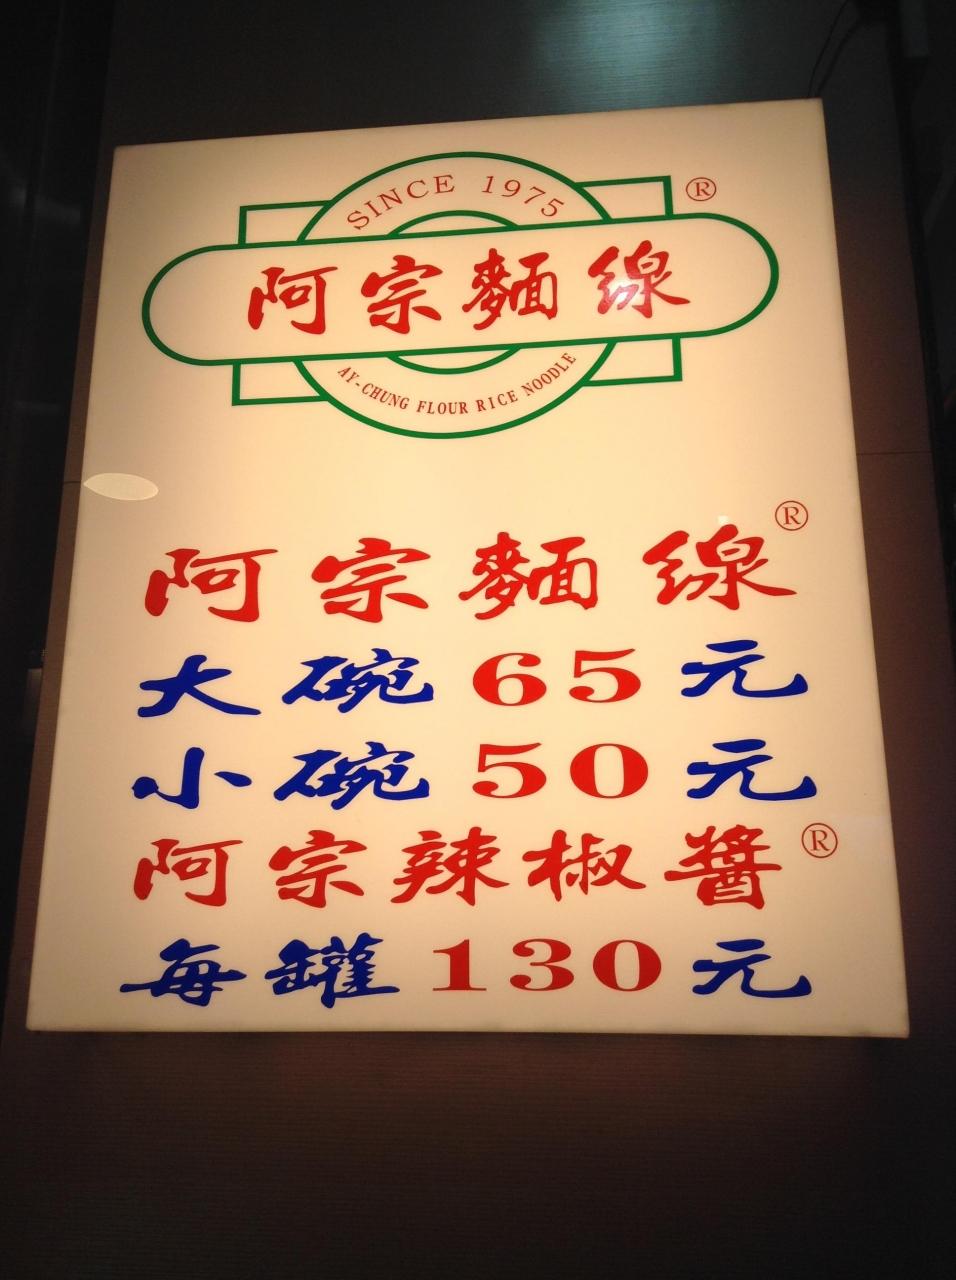 SINCE 1975
®
阿宗麵線
AY-CHUNG FLOUR RICE NOODLE
阿宗麵線®
大碗 65 元
小碗 50 元
阿宗辣椒醬®
每罐 130 元